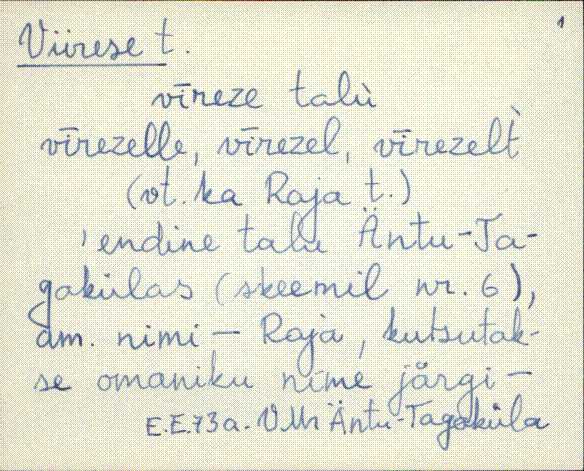 1
Viirese t.
vīreze talù
vīrezelle, vīrezel, vīrezelt̀
(vt. ka Raja t.)
'endine talu Äntu-Ta-
gakülas (skeemil nr. 6),
am. nimi – Raja, kutsutak-
se omaniku nime järgi –
E.E.73a. VMr Äntu-Tagaküla